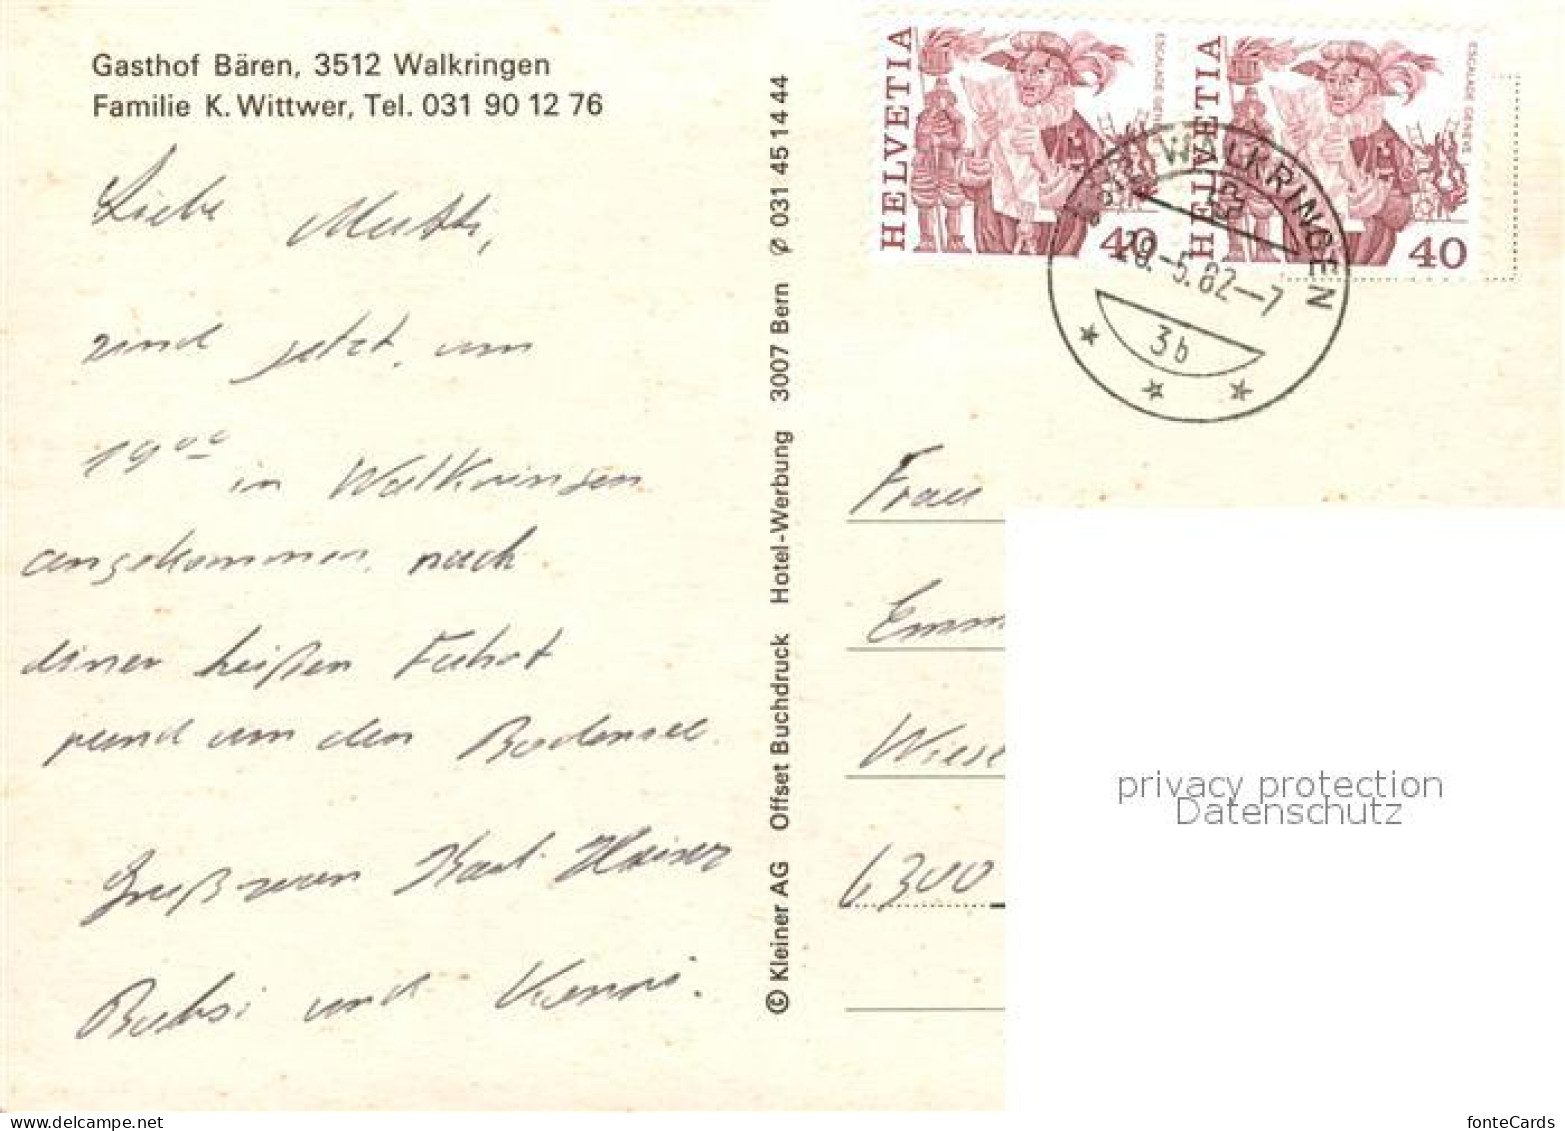 Gasthof Bären, 3512 Walkringen
Familie K. Wittwer, Tel. 031 90 12 76
Liebe Mutti,
sind jetzt, um
19⁰⁰ in Walkringen
angekommen, nach
einer heißen Fahrt
rund um den Bodensee.
Gruß von Karl-Heinz
und
© Kleiner AG Offset Buchdruck Hotel-Werbung 3007 Bern ∅ 031 45 14 44
HELVETIA
ESCALADE GENÈVE
40
HELVETIA
ESCALADE GENÈVE
40
WALKRINGEN
-5.82-7
3b
Frau
Emm
Wies
6300
privacy protection
Datenschutz
© www.delcampe.net
fonteCards